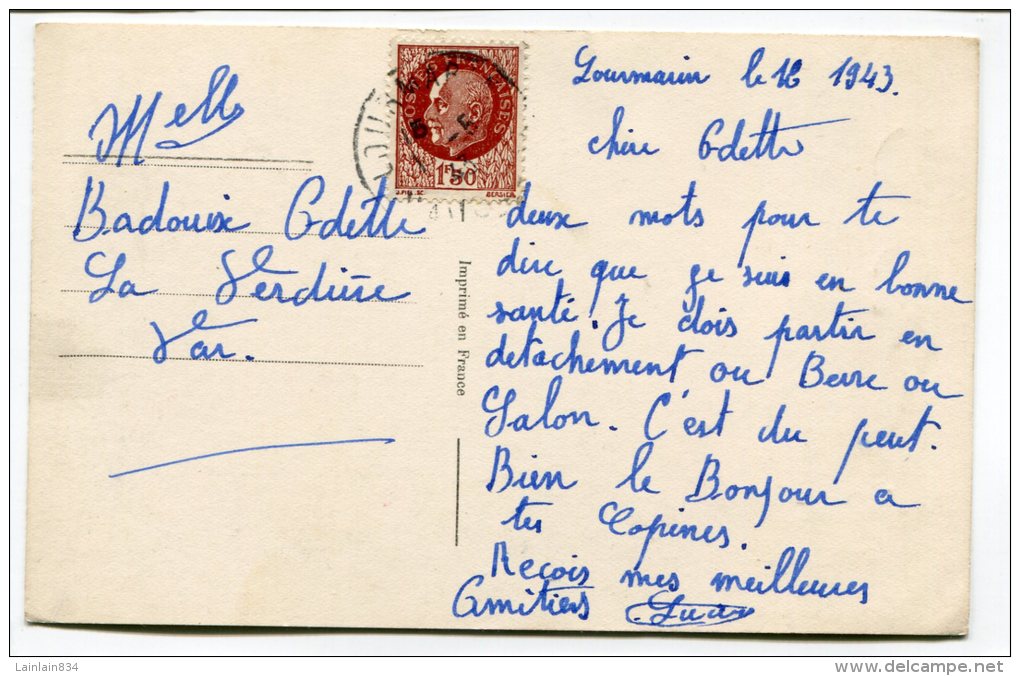 Melle
Badouix Odette
La Verdière
Var.
POSTES FRANÇAISES
1F50
BERSIER
Imprimé en France
Lourmarin le 16 1943.
chère Odette
deux mots pour te
dire que je suis en bonne
santé. Je dois partir en
detachement ou Berre ou
Salon. C'est du peut.
Bien le Bonjour a
tes Copines.
Reçois mes meilleures
Amitiers
Lainlain834
delcampe.net